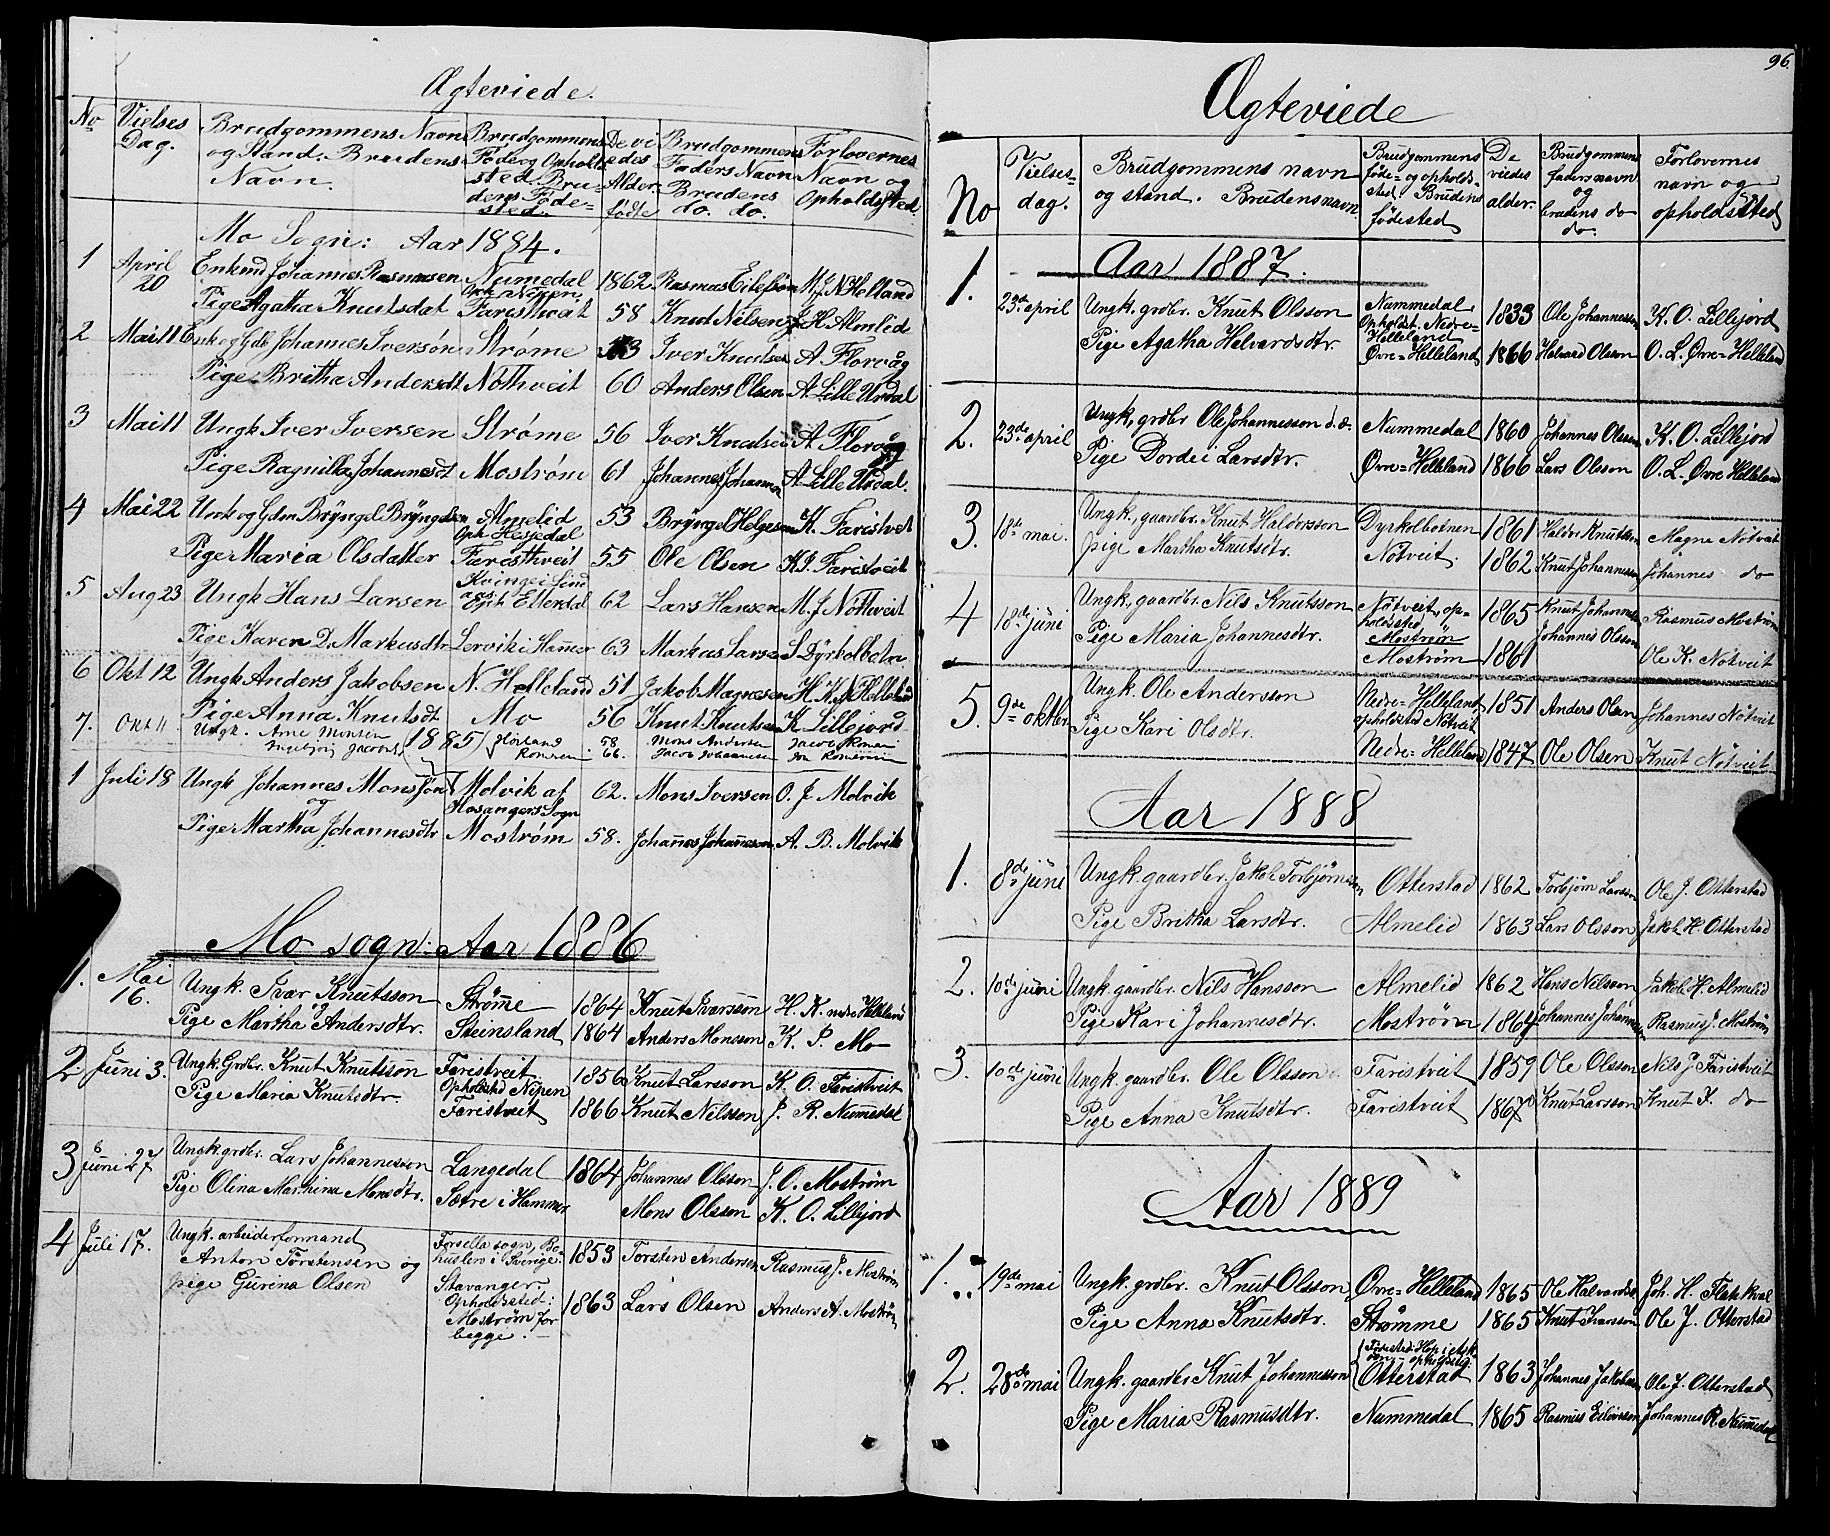 Ægteviede.
No Vielses Dag. Brudgommens Navn og Stand. Brudens Navn. Brudgommens Føde og Opholdssted. Brudens Fødested. De viedes Alder fødte Brudgommens Faders Navn Brudens do. do. Forlovernes Navn og Opholdssted.
Mo Sogn: Aar 1884.
1 April 20 Enkmd Johannes Rasmussen Numedal Oph. Nipen 1862 Rasmus Eilefsøn M. J. N Helland
Pige Agatha Knutsdat Faristveit 58 Knut Nilsen J. H. Almlid
2 Mai 11 Enk og Gdb Johannes Iversøn Strøme 53 Iver Knudsen A. Florvåg
Pige Britha Andersdt Nøthveit 60 Anders Olsen A. Lille Urdal
3 Mai 11 Ungk Iver Iversen Strøme 56 Iver Knudsen A. Florvåg
Pige Ragnilka Johannesdt Mostrøm 61 Johannes Johannes A. Lille Urdal.
4 Mai 22 Unk og Gdm Brÿngel Brÿngelsen Almelid Oph. Hesjedal 53 Brÿngel Helgesen K. Faristvet
Pige Maria Olsdatter Færisthveit 55 Ole Olsen K. I. Faristveit
5 Aug 23 Ungk Hans Larsen Kvinge i Lindaas Opt Ellerdal 62 Lars Hansen M. J. Nøthveit
Pige Karen D. Markusdtr Lervik i Hammer 63 Markus Larsen S Dÿrkolbotn.
6 Okt 12 Ungk Anders Jakobsen N. Helleland 51 Jakob Magnesen H. K. N. Helleland
Pige Anna Knutsdt Mo 56 Knut Knutsen K Lillejord
7. Okt 11 Ungk. Arne Monsen Hørland 58 Mons Andersen Jacob Romen
Ingebjørg Jacobsdt Romren 66. Jacob Johannesen
1885
1 Juli 18 Ungk Johannes Monssøn Molvik af Hosangers Sogn 62. Mons Iversen O. J Molvik
og
Pige Martha Johannesdtr Mostrøm 58. Johannes Johannesson A. B. Molvik
Mo sogn: Aar 1886
1. Mai 16. Ungk. Ivar Knutsson Strømme 1864 Knut Ivarsson H. K. nedre Helleland
og
Pige Martha Andersdtr. Steinsland 1864 Anders Monsson K. P. Mo
2 Juni 3. Ungk. Grdbr. Knut Knutsson Faristveit Opholdssted Nipen 1856 Knut Larsson K. O. Faristveit
Pige Maria Knutsdtr. Faristveit 1866 Knut Nilsson J. R. Numedal
3 Juni 27 Ungk. grdbr. Lars Johannesson Langedal 1864 Johannes Olsson J. O. Mostrøm
Pige Olina Marthina Monsdtr. Sætre i Hammer Mons Olsson K. O. Lillejord
4 Juli 17. Ungk. arbeiderformand Forsella sogn, Bohuslen i Sverige. 1853 Torsten Andersen Rasmus J. Mostrøm
Anton Torstensen og
pige Gurina Olsen Stavanger. 1863 Lars Olsen Anders A. Mostrøm
Opholdssted:
Mostrøm for
begge.
96.
Ægteviede
No Vielses-dag. Brudgommens navn og stand. Brudens navn Brudgommens føde- og opholds-sted. Brudens fødested De viedes alder. Brudgommens faders navn og brudens do do. Forlovernes navn og opholdssted
Aar 1887.
1. 23de april Ungk. grdbr. Knut Olsson Nummedal, Opholdst. Nedre-Helleland 1833 Ole Johannessen K. O. Lillejord
Pige Agatha Helvardsdtr. Øvre-Helleland 1866 Halvard Olsson O. L. Øvre-Helleland
2. 23de april Ungk, grdbr Ole Johannesson d. æ. Nummedal 1860 Johannes Olsson K. O. Lillejord
Pige Dordei Larsdtr. Øvre-Helleland 1866 Lars Olsson O. L. Øvre Helleland
3. 18de mai. Ungk., gaardbr. Knut Haldorsson Dyrkolbotnen 1861 Haldor Knutsson Magne Nøtveit
pige Martha Knutsdtr. Nøtveit. 1862 Knut Johannesson Johannes do
4 18de juni Ungk., gaardbr. Nils Knutsson Nøtveit, opholdssted Mostrøm 1865 Knut Johannesson Rasmus Mostrøm
Pige Maria Johannesdtr. Mostrøm 1861 Johannes Olsson Ole K. Nøtveit
5. 9de oktbr. Ungk. Ole Andersson Nedre-Helleland, opholdssted Nøtveit 1851 Anders Olsen Johannes Nøtveit
Pige Kari Olsdtr. Nedre-Helleland 1847 Ole Olsen Knut Nøtveit
Aar 1888
1. 8de juni Ungk. gaardbr. Jakob Torbjørnsson Otterstad 1862 Torbjørn Larsson Ole J. Otterstad
Pige Britha Larsdtr. Almelid 1863 Lars Olsson Jakob H. Otterstad
2. 10de juni Ungk. gaardbr. Nils Hansson Almelid 1862 Hans Nilsson Jakob H. Almelid
Pige Kari Johannesdtr. Mostrøm 1864 Johannes Johannesson Rasmus J. Mostrøm
3. 10de juni Ungk. gaardbr. Ole Olsson Faristveit 1859 Ole Olsson Nils J. Faristveit
Pige Anna Knutsdtr. Faristveit 1867 Knut Larsson Knut I. do
Aar 1889
1. 19de mai Ungk. grdbr. Knut Olsson Øvre-Helleland 1865 Ole Halvardss. Joh. H. Flatekval
Pige Anna Knutsdtr. Strømme 1865 Knut Ivarsson Ole J. Otterstad
2. 28de mai Ungk. gaardbr Knut Johannesson Otterstad 1863 Johannes Jakobsen Ole J. Otterstad
Pige Maria Rasmusdtr. Nummedal 1865 Rasmus Eilivsson Johannes R. Nummedal